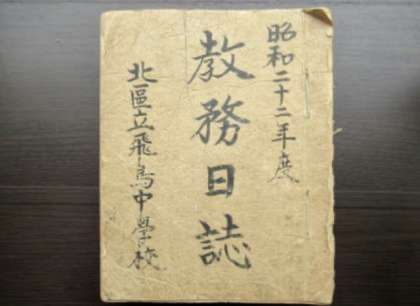 昭和二十二年度
教務日誌
北區立飛鳥中學校